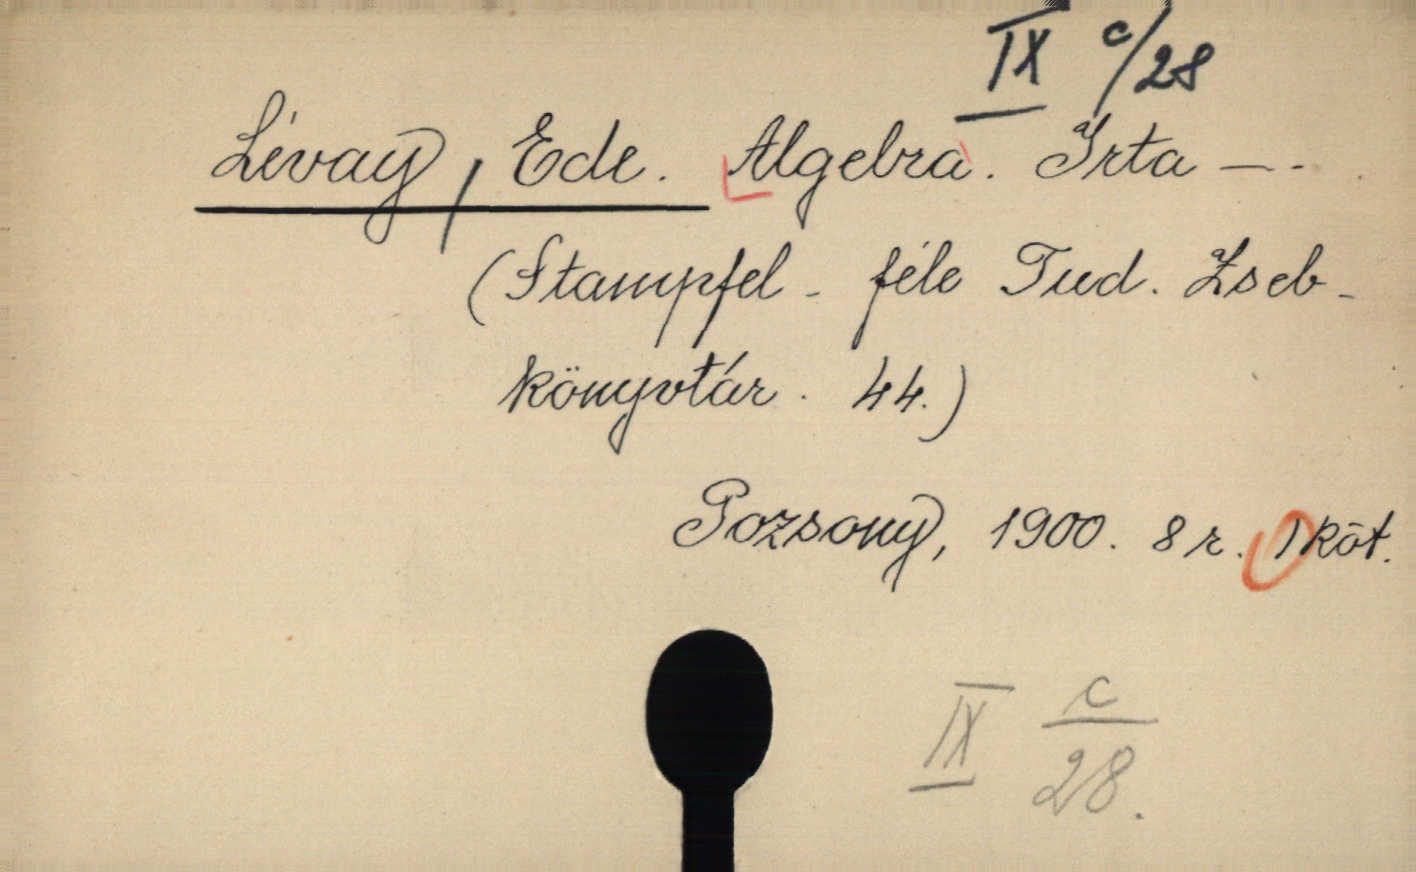 IX c/28
Lévay, Ede. Algebra. Irta —-.
(Stampfel - féle Tud. Zseb-
könyvtár. 44.)
Pozsony, 1900. 8 r. 1 köt.
IX c/28.